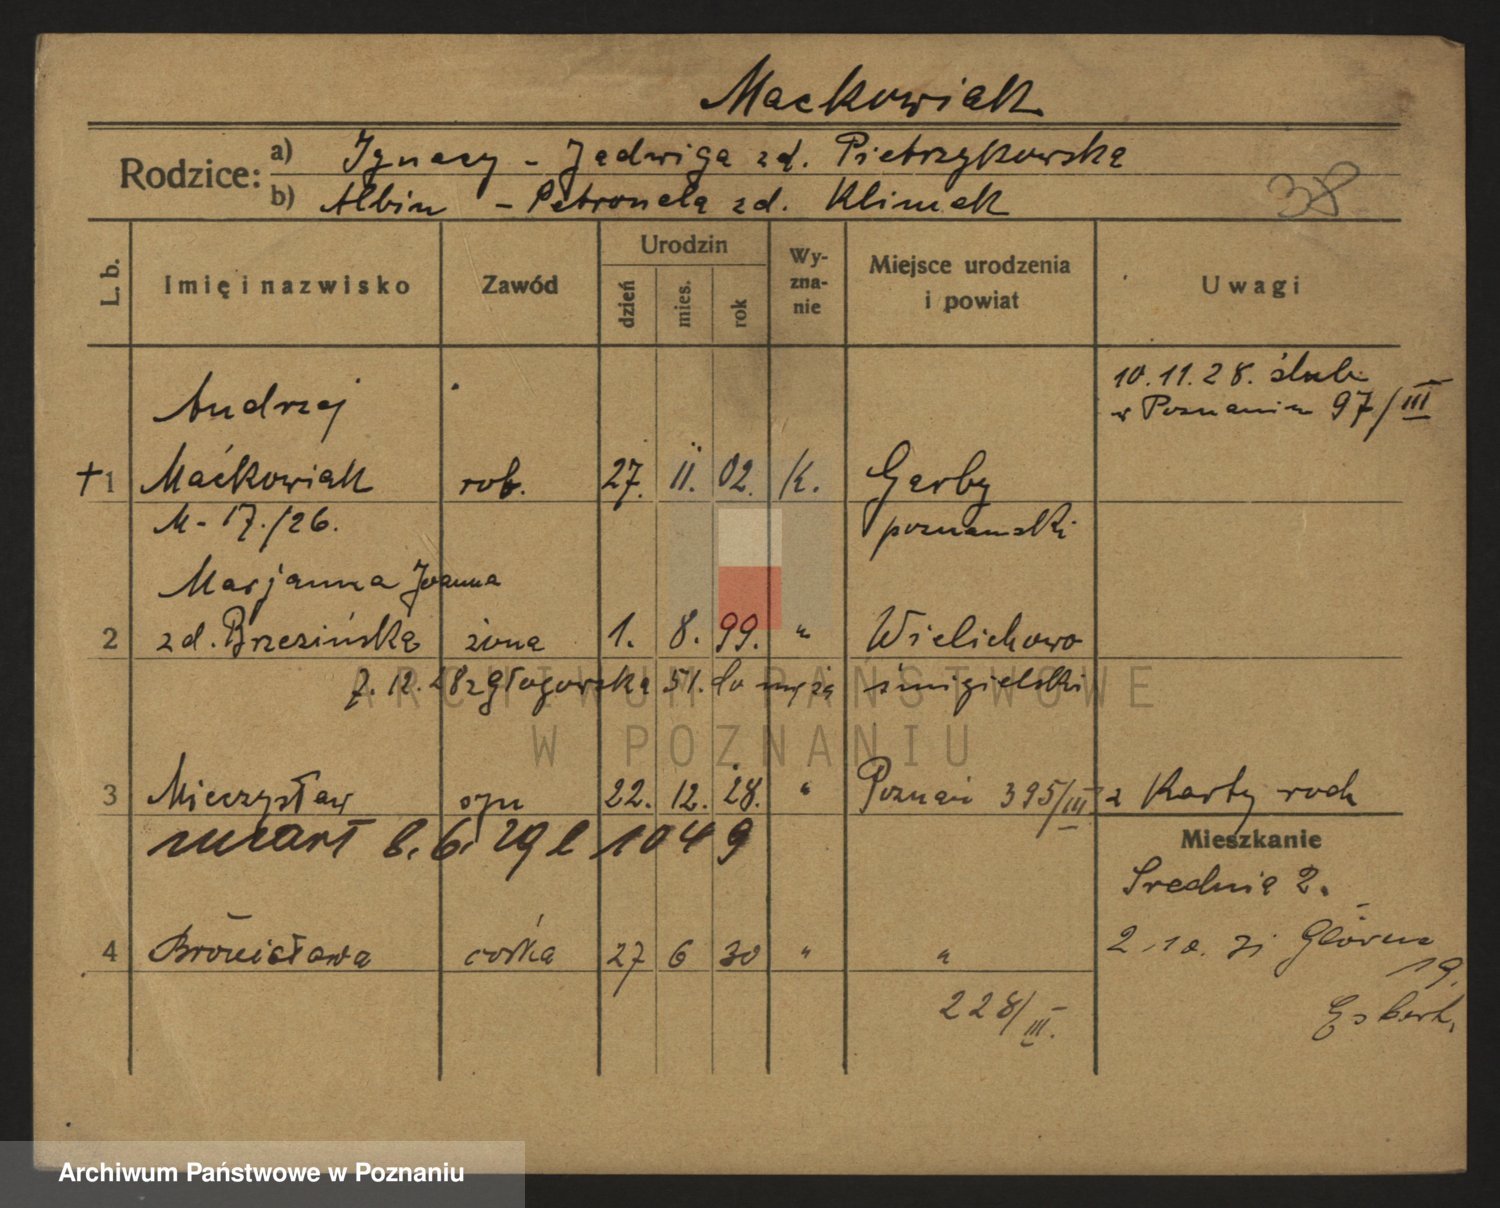 Maćkowiak
Rodzice: a) Ignacy - Jadwiga zd. Pietrzykowska
b) Albin - Petronela zd. Klimek
38
L. b. Imię i nazwisko Zawód Urodzin dzień mies. rok Wyznanie Miejsce urodzenia i powiat Uwagi
10.11.28. ślub
w Poznaniu 97/III
Andrzej
+ 1 Maćkowiak rob. 27. 11. 02. K. Garby
M-17./26. poznański
Marjanna Joanna
2 zd. Brzezińska żona 1. 8. 99. " Wielichowo
7.12.28 z Głogowska 51. do męża śmigielski
ARCHIWUM PAŃSTWOWE
W POZNANIU
3 Mieczysław syn 22. 12. 28. " Poznań 395/III z Karty rodz
zmarł 8.6.29 l 1049
Mieszkanie
Średnia 2.
4 Bronisława córka 27 6 30 " "
2.10. Główna
19.
228/III.
Archiwum Państwowe w Poznaniu